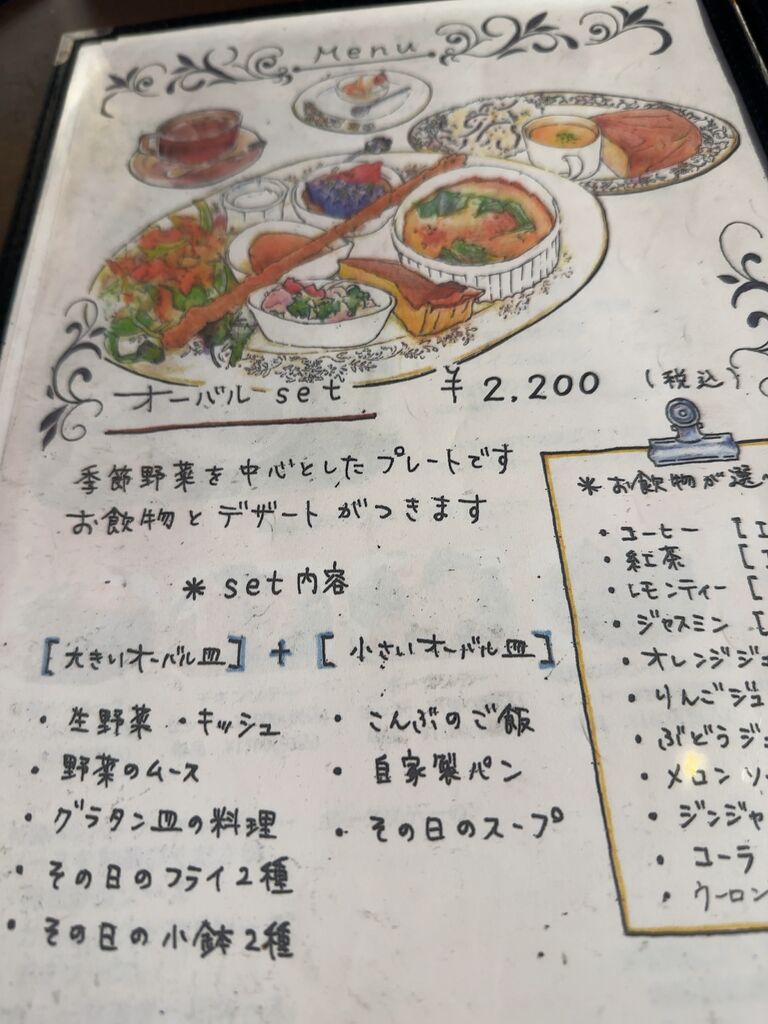 Menu
オーバル set ¥2,200 (税込)
季節野菜を中心とした プレートです
お飲物と デザートがつきます
* set 内容
[大きいオーバル皿] + [小さいオーバル皿]
・生野菜 ・キッシュ
・野菜のムース
・グラタン皿の料理
・その日のフライ2種
・その日の小鉢2種
・こんぶのご飯
・自家製パン
・その日のスープ
*お飲物が選
・コーヒー [
・紅茶 [
・レモンティー [
・ジャスミン [
・オレンジジ
・りんごジュ
・ぶどうジ
・メロンソ
・ジンジャ
・コーラ
・ウーロン